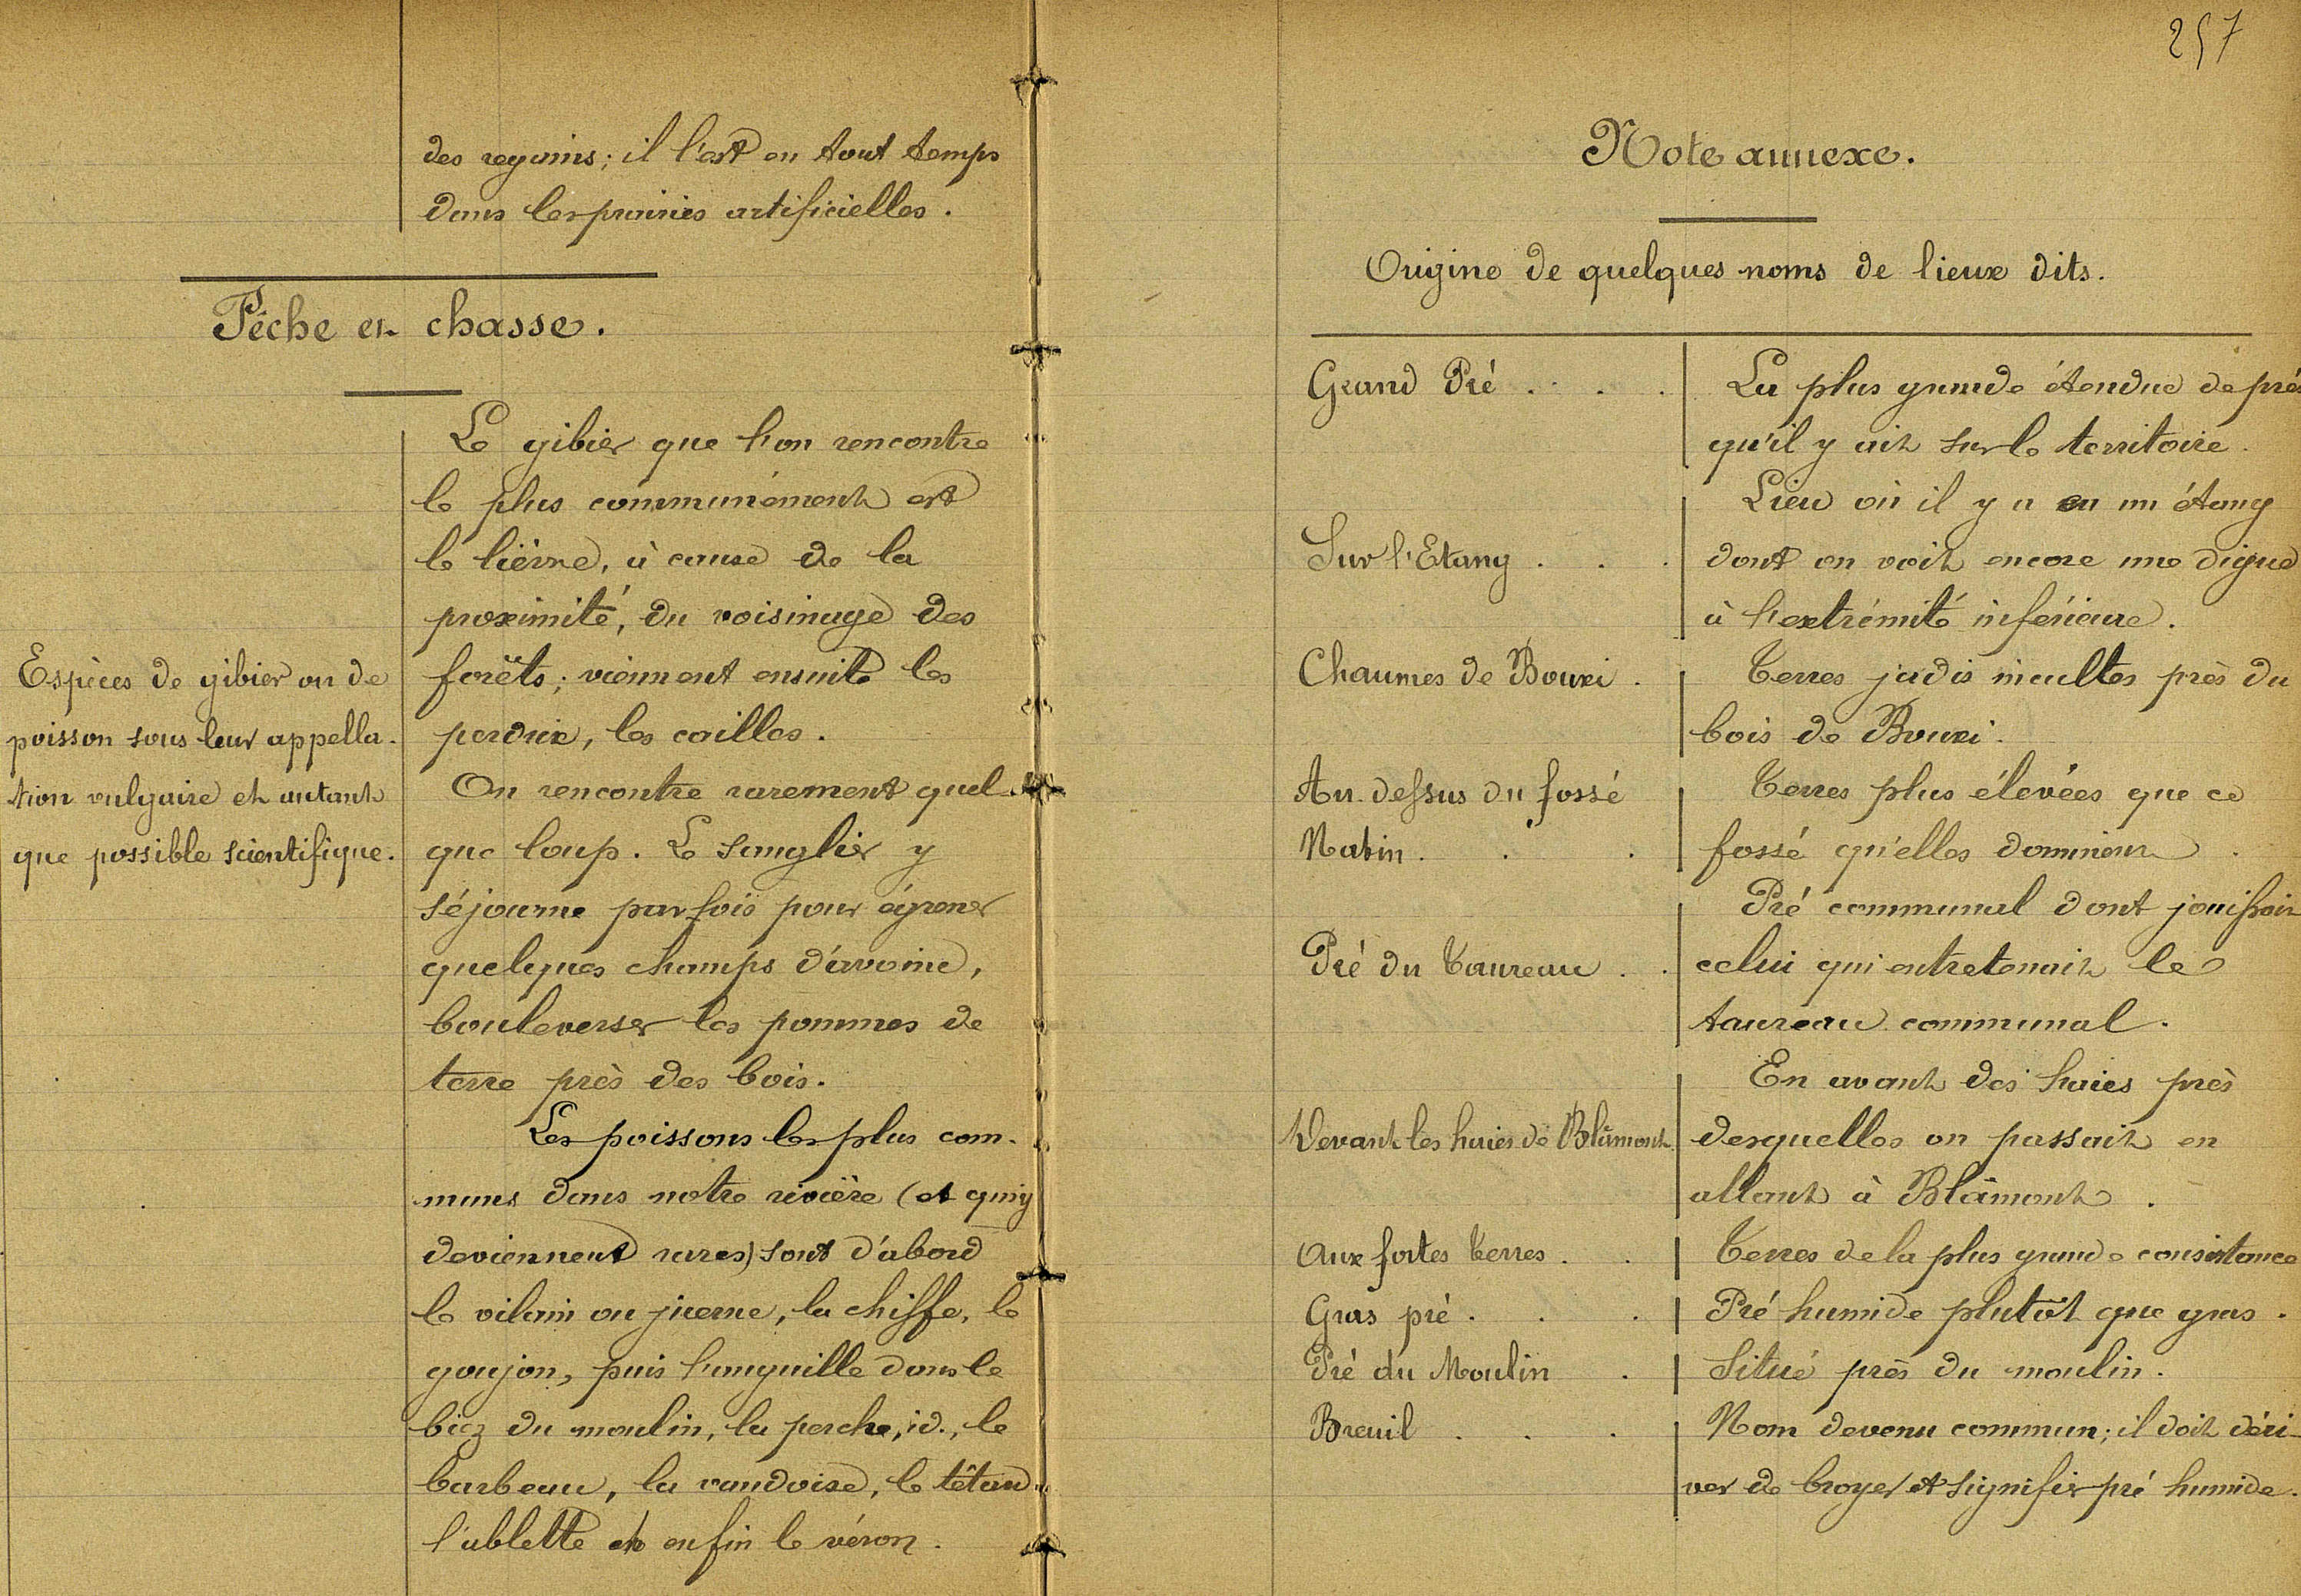 des regains; il l'est en tout temps
dans les prairies artificielles.
Pêche et chasse.
Espèces de gibier ou de
poisson sous leur appella-
tion vulgaire et autant
que possible scientifique.
Le gibier que l'on rencontre
le plus communément est
le lièvre, à cause de la
proximité, du voisinage des
forêts; viennent ensuite les
perdrix, les cailles.
On rencontre rarement quel-
que loup. Le sanglier y
séjourne parfois pour égrener
quelques champs d'avoine,
bouleverser les pommes de
terre près des bois.
Les poissons les plus com-
muns dans notre rivière (et qui y
deviennent rares) sont d'abord
le vilain ou juerne, la chiffe, le
goujon, puis l'anguille dans le
biez du moulin, la perche, id., le
barbeau, la vandoise, le têtard
l'ablette et enfin le véron.
257
Note annexe.
Origine de quelques noms de lieux dits.
Grand Pré . . .
La plus grande étendue de prés
qu'il y ait sur le territoire.
Sur l'Etang . . .
Lieu où il y a eu un étang
dont on voit encore une digue
à l'extrémité inférieure.
Chaumes de Bouxi .
Terres jadis incultes près du
bois de Bouxi.
Au-dessus du fossé
Matin . . .
Terres plus élevées que ce
fossé qu'elles dominent .
Pré du Taureau . .
Pré communal dont jouissait
celui qui entretenait le
taureau communal.
Devant les haies de Blâmont
En avant des haies près
desquelles on passait en
allant à Blâmont .
Aux fortes Terres . .
Terres de la plus grande consistance
Gras pré . . .
Pré humide plutôt que gras .
Pré du Moulin .
Situé près du moulin.
Breuil . . .
Nom devenu commun; il doit déri-
ver de broyer et signifier pré humide.